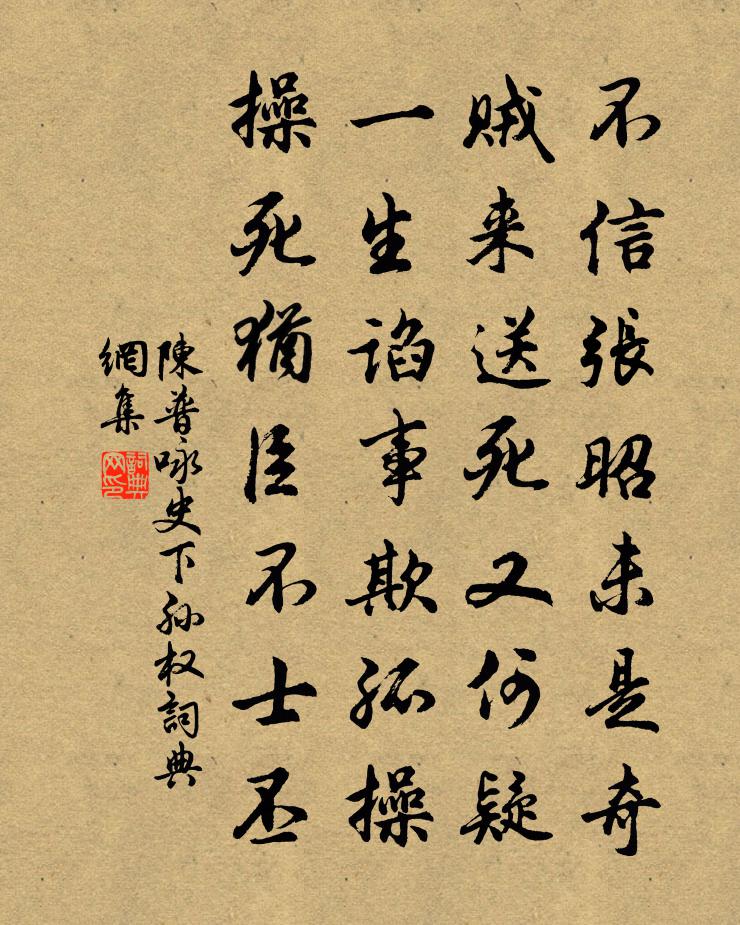 不信張昭未是奇
賊来送死又何疑
一生謟事欺孤操
操死猶臣不士丕
陳普咏史下孙权詞典
網集
詞典
网印